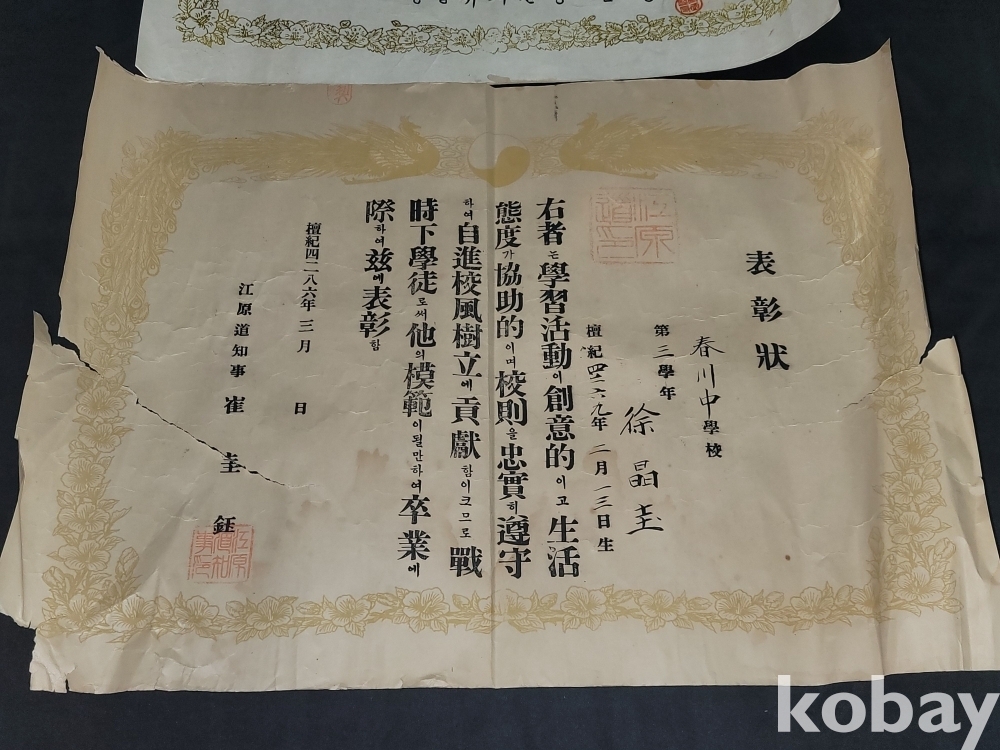 表彰狀
春川中學校
第三學年
徐晶圭
檀紀四二六九年 二月一三日生
右者는 學習活動이 創意的이고 生活
態度가 協助的이며 校則을 忠實히 遵守
하여 自進校風樹立에 貢獻함이크므로 戰
時下學徒로써 他의 模範이될만하여 卒業에
際하여 玆에 表彰함
檀紀四二八六年 三月 日
江原道知事 崔圭鈺
江原道印
江原道知事印
kobay